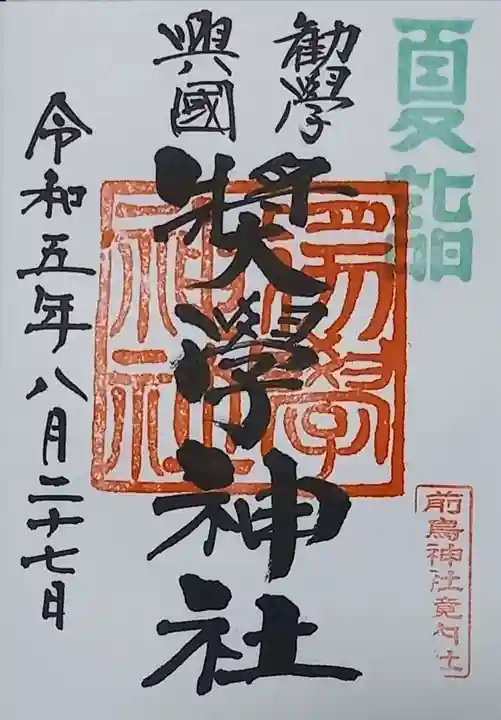 夏詣
勧學
興國
奬學神社
令和五年八月二十七日
前鳥神社境内社